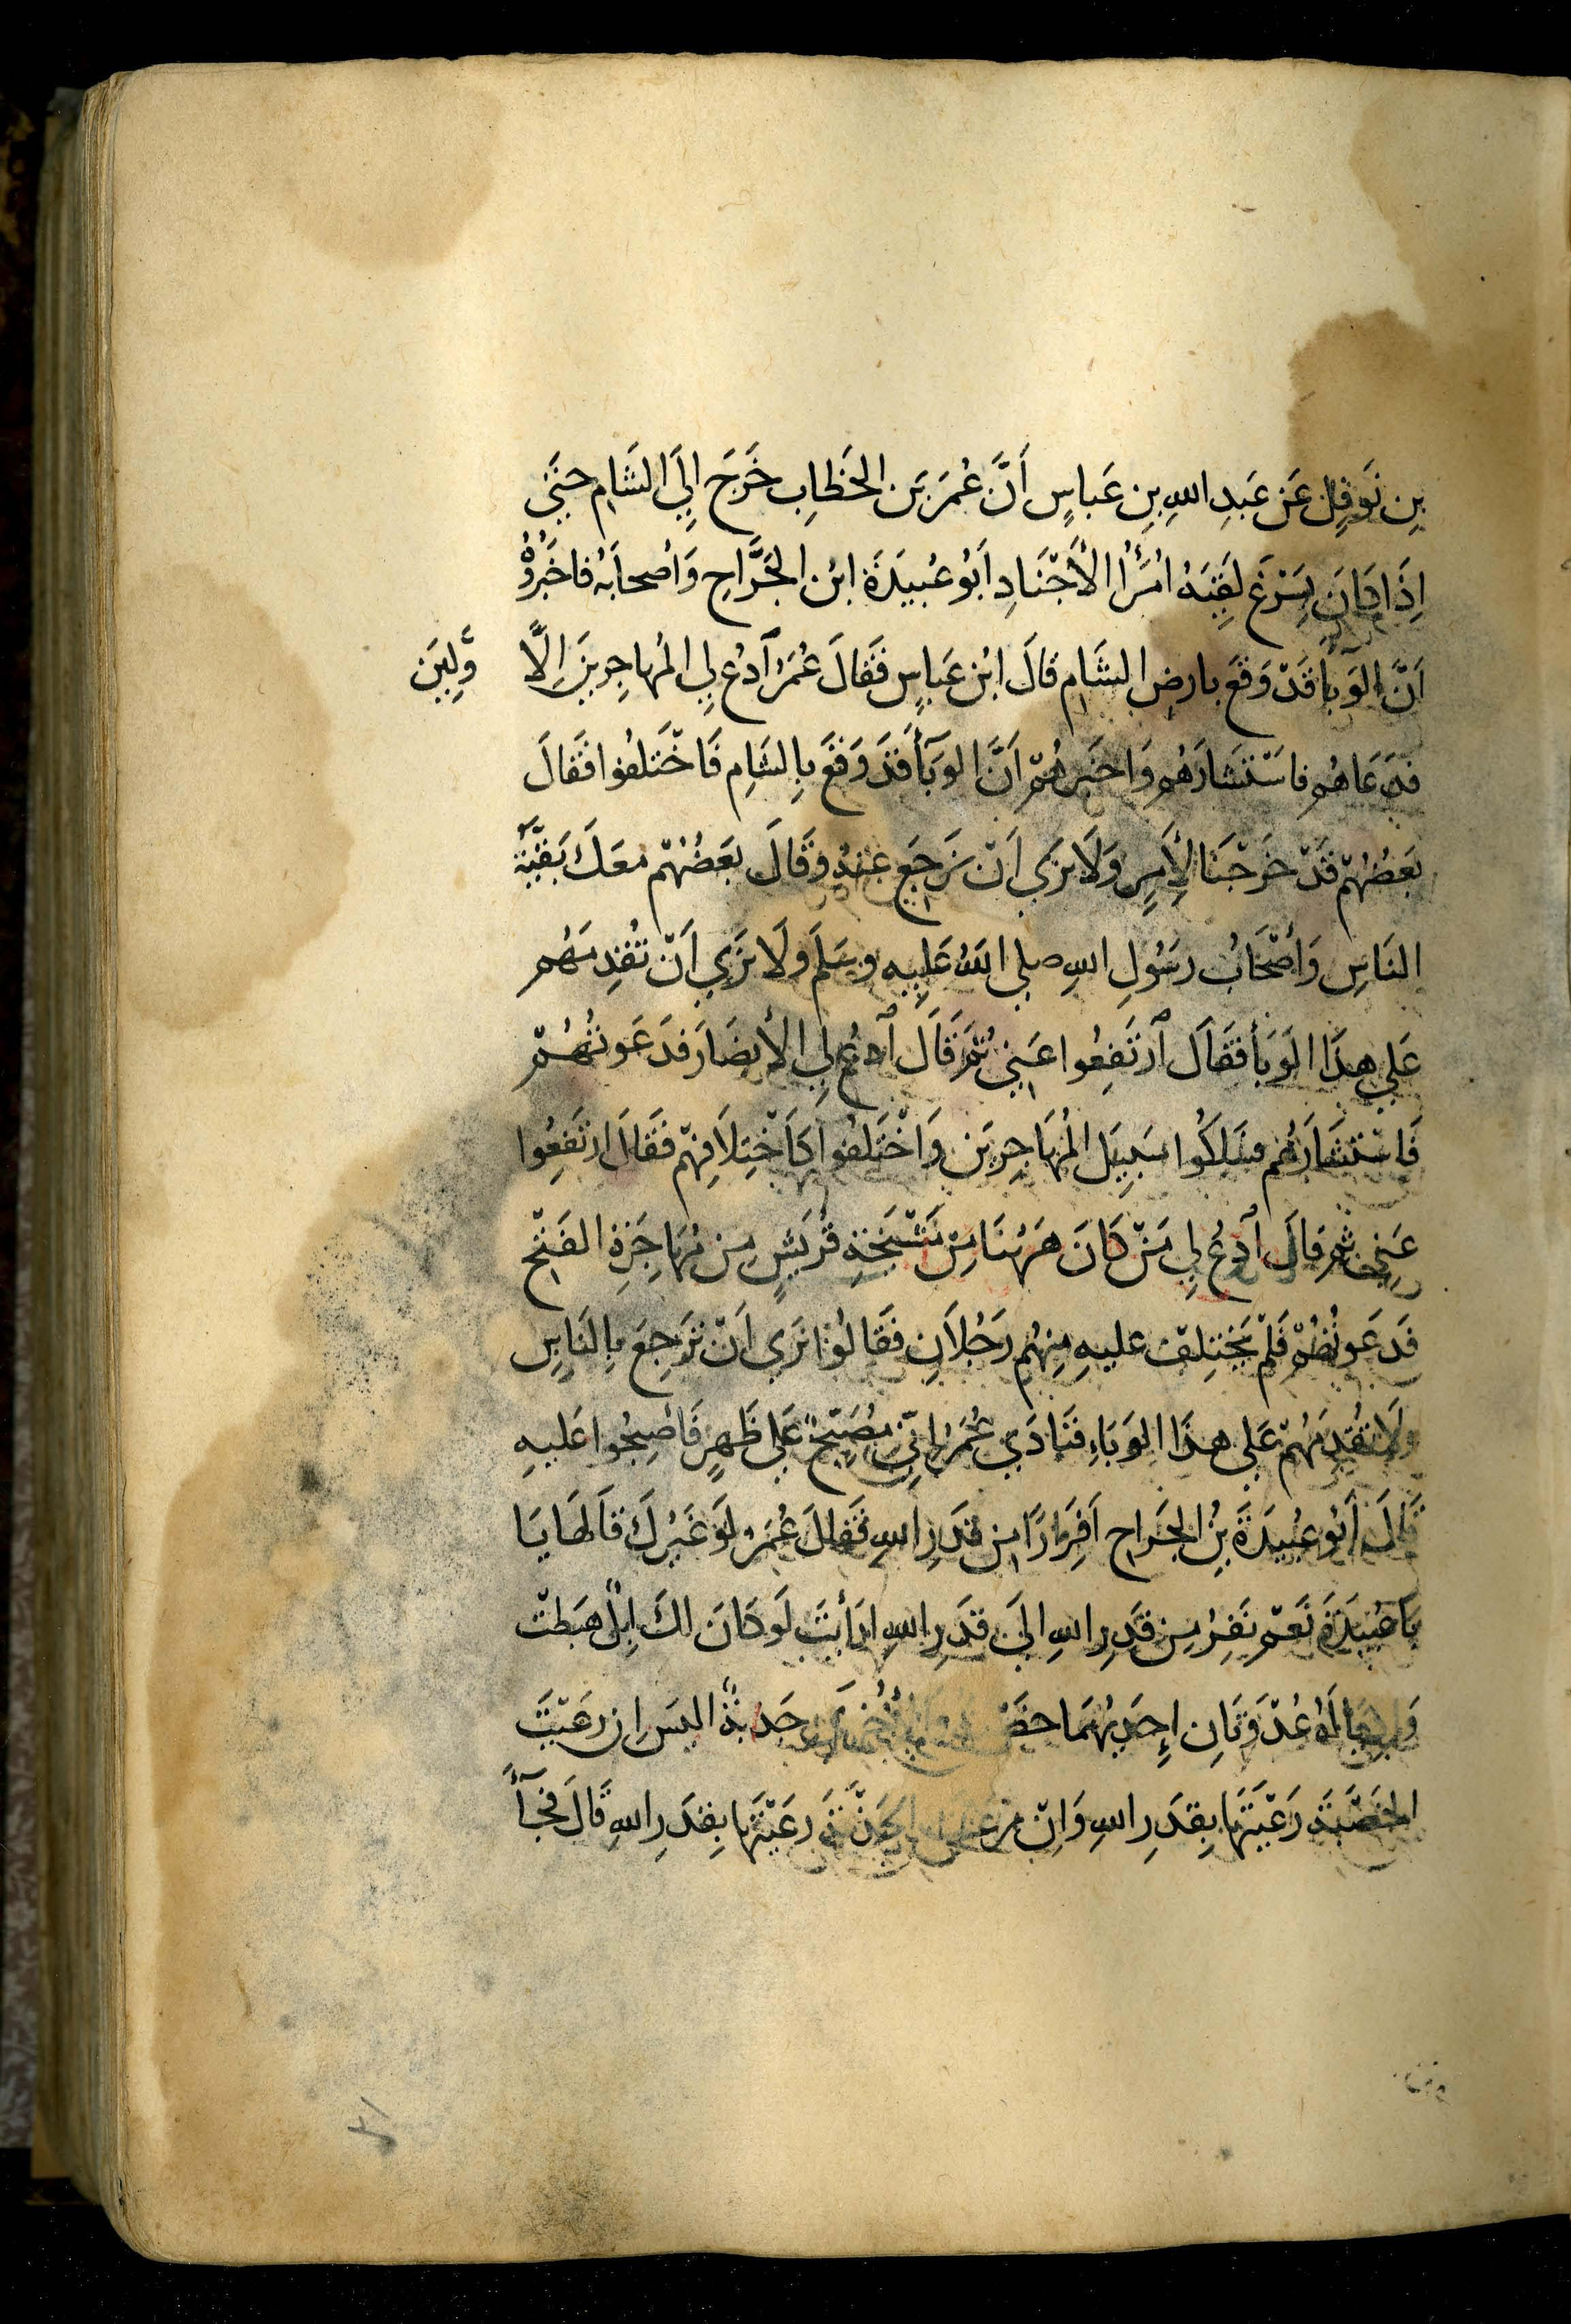 بِن نَوفِلٍ عَن عَبدِ اللهِ بنِ عَباسٍ أَنَّ عُمَرَ بَن الخَطابِ خَرَجَ إِلَى الشَامِ حتَى
اِذَا كانَ بِسَرْغَ لَقِيَهُ اُمَرَأُ الأَجْنَادِ اَبُو عُبيدَةَ ابنُ الجَرَّاحِ وَأصحابَهُ فاخبَرُوْهُ
اَنَّ الوَبأ قَدْ وَقَعَ بارضِ الشَامِ قالَ ابنُ عَباسٍ فَقالَ عُمَرُ آدعُ لِي المُهاجِرينَ الاَّ
وَّلِيَن
فدَعَاهُم فاسْتَشارَهُم وَاخبَرهُمْ اَنَّ الوَبَأَ قَدَ وَقَعَ بِالشَامِ فَاخْتَلفُوا فَقالَ
بعَضُهُمْ قَدْ خَرَجْنَا لِأَمرٍ وَلَا نرَي اَنْ نَرجَع عَنهُ وقَالَ بعَضُهُمْ معَكَ بَقيَّةُ
النَاسِ وَأصْحَابُ رسَوُلِ اللهِ صلي اللهُ عَليِه وسَلَم ولَا نَرَي اَنْ تُقدِمَهُم
عَلي هذَا الوَبَأ فقَالَ آرتَفِعُوا عَنيِ ثُمَ قَالَ آدعُ لِي الأنصَارَ فدَعَوتُهُمْ
فَاستَشَارَهُم فسَلكُوا سَبِيَل المُهَاجِريَن وَاخْتَلفُوا كَاخْتِلَافِهِمْ فقَالَ ارتَفِعُوا
عَنِي ثم قالَ آدعُ لِي مَنْ كَانَ هَهُنَا مِنْ مَشْيَخَةِ قُريَشٍ مِن مُهَاجِرَةِ الفَتْحِ
فَدعَوتُهُمْ فَلَمْ يَختلِفْ عليهِ مِنهُم رَجُلاَنِ فقَالوُا نرَي اَنْ تَرجِعَ بِالنَاسِ
ولَا تُقدِمَهُمْ عَلي هذَا الوَبَاءِ فنَادَي عُمَرُ اِنِّي مُصَبِّحٌ عَلَي ظَهرٍ فَاصبِحُوا عَليهِ
قَالَ اَبُو عبُيدَةَ بنُ الجَراحِ اَفِرَارًا مِن قَدَرِ اللهِ فقَالَ عُمَرُ لوَ غَيُرك قالَهَا يَا
بَا عُبيَدَةَ نَعَمْ نَفِرُ مِن قَدَرِ اللهِ الَى قَدَرِ اللهِ ارَأيتَ لَو كانَ لكَ اِبِلٌ هبَطتْ
وَادِيًا لَهُ عُدْوَتَانِ اِحدَيهُمَا وَالأُخرَي جَدبةٌ اليسَ اِن رعَيْتَ
الخَصْبَةَ رعَيْتَهَا بِقدَرِ اللهِ وَاِنْ رعَيتَ الجَدْبَةَ رعَيْتَهَا بِقدَرِ اللهِ قَالَ فجَآءَ